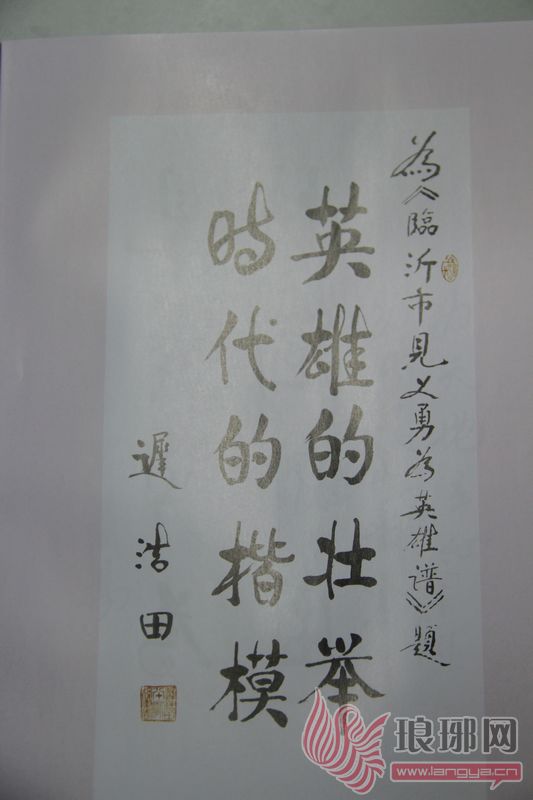 為《臨沂市見义勇為英雄谱》題
英雄的壮举
時代的楷模
遲浩田
琅琊网
www.langya.cn